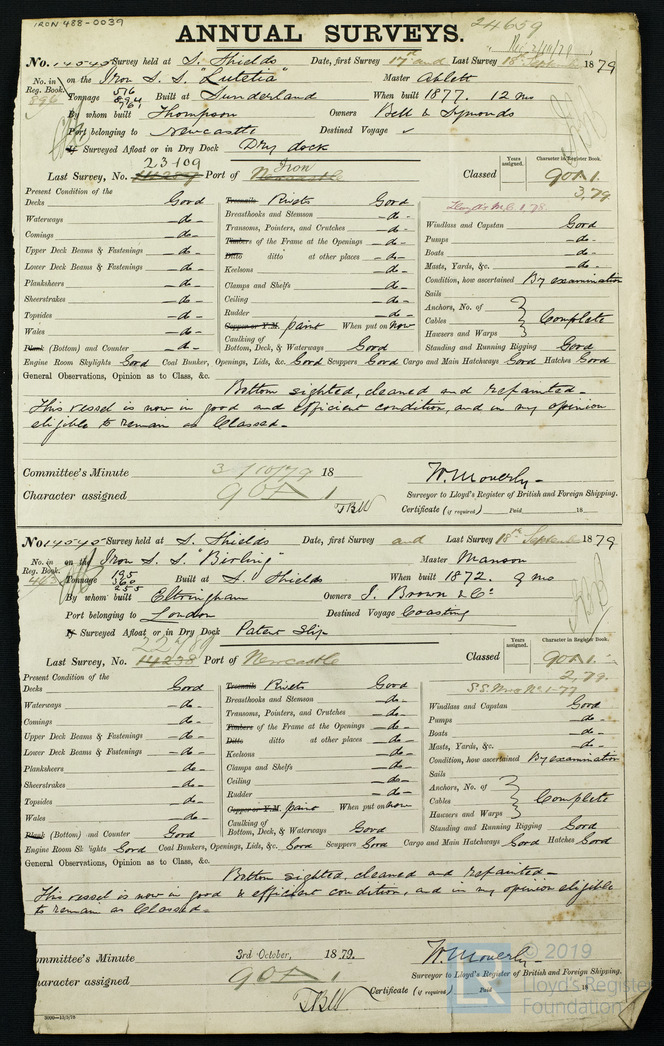 IRON 488-0039
24659
ANNUAL SURVEYS.
No. 14540 Survey held at S. Shields Date, first Survey 17th and Last Survey 18th Septembr 1879
No. in Reg. Book. on the Iron S. S. "Lutetia" Master Ablett
896 Tonnage 516 Built at Sunderland When built 1877. 12 mo
By whom built Thompson Owners Bell & Symonds
Port belonging to Newcastle Destined Voyage
If Surveyed Afloat or in Dry Dock Dry dock
23109 Iron
Last Survey, No. Port of Newcastle Classed 90A1.
Years assigned. Character in Register Book.
3,79
Present Condition of the
Decks Good
Waterways do
Comings do
Upper Deck Beams & Fastenings do
Lower Deck Beams & Fastenings do
Planksheers do
Sheerstrakes do
Topsides do
Wales do
Plank (Bottom) and Counter do
Treenails Rivets Good
Breasthooks and Stemson do
Transoms, Pointers, and Crutches do
Timbers of the Frame at the Openings do
Ditto ditto at other places do
Keelsons do
Clamps and Shelfs do
Ceiling do
Rudder do
Copper or Y.M. paint When put on now
Caulking of Bottom, Deck, & Waterways Good
Lloyd's M.C. 1.78
Windlass and Capstan Good
Pumps do
Boats do
Masts, Yards, &c. do
Condition, how ascertained By examination
Sails
Anchors, No. of
Cables Complete
Hawsers and Warps
Standing and Running Rigging Good
Engine Room Skylights Good Coal Bunker, Openings, Lids, &c. Good Scuppers Good Cargo and Main Hatchways Good Hatches Good
General Observations, Opinion as to Class, &c.
Bottom sighted, cleaned and repainted-
This vessel is now in good and efficient condition, and in my opinion
eligible to remain as Classed-
Committee's Minute 3/10/79 18
W. Moverly-
Character assigned 90A1
Surveyor to Lloyd's Register of British and Foreign Shipping.
TBW
Certificate (if required) Paid 18
No. 14540 Survey held at S. Shields Date, first Survey and Last Survey 18th Septembr 1879
No. in Reg. Book. on the Iron S. S. "Birling" Master Manson
Tonnage 195 360 255 Built at S. Shields When built 1872. 9 mo
By whom built Eltringham Owners J. Brown & Co
Port belonging to London Destined Voyage Coasting
If Surveyed Afloat or in Dry Dock Patent Slip
Last Survey, No. 14238 Port of Newcastle Classed 90A1.
Years assigned. Character in Register Book.
2,79.
Present Condition of the
Decks Good
Waterways do
Comings do
Upper Deck Beams & Fastenings do
Lower Deck Beams & Fastenings do
Planksheers do
Sheerstrakes do
Topsides do
Wales do
Plank (Bottom) and Counter Good
Treenails Rivets Good
Breasthooks and Stemson do
Transoms, Pointers, and Crutches do
Timbers of the Frame at the Openings do
Ditto ditto at other places do
Keelsons do
Clamps and Shelfs do
Ceiling do
Rudder do
Copper or Y.M. paint When put on now
Caulking of Bottom, Deck, & Waterways Good
Windlass and Capstan Good
Pumps do
Boats do
Masts, Yards, &c. do
Condition, how ascertained By examination
Sails
Anchors, No. of
Cables Complete
Hawsers and Warps
Standing and Running Rigging Good
Engine Room Sk ights Good Coal Bunkers, Openings, Lids, &c. Good Scuppers Good Cargo and Main Hatchways Good Hatches Good
General Observations, Opinion as to Class, &c.
Bottom sighted, cleaned and repainted-
This vessel is now in good & efficient condition, and in my opinion eligible
to remain as Classed-
ommittee's Minute 3rd October, 1879.
W. Moverly-
haracter assigned 90A1
Surveyor to Lloyd's Register of British and Foreign Shipping.
TBW
Certificate (if required) Paid 18
© 2019
Lloyd's Register
Foundation
LR